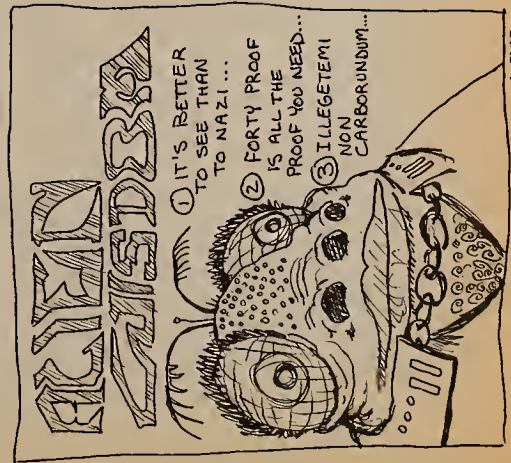 ALIEN
WISDOM
① IT'S BETTER
TO SEE THAN
TO NAZI...
② FORTY PROOF
IS ALL THE
PROOF YOU NEED...
③ ILLEGETEMI
NON
CARBORUNDUM...